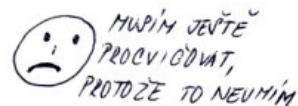 MUSÍM JEŠTĚ
PROCVIČOVAT,
PROTOŽE TO NEUMÍM